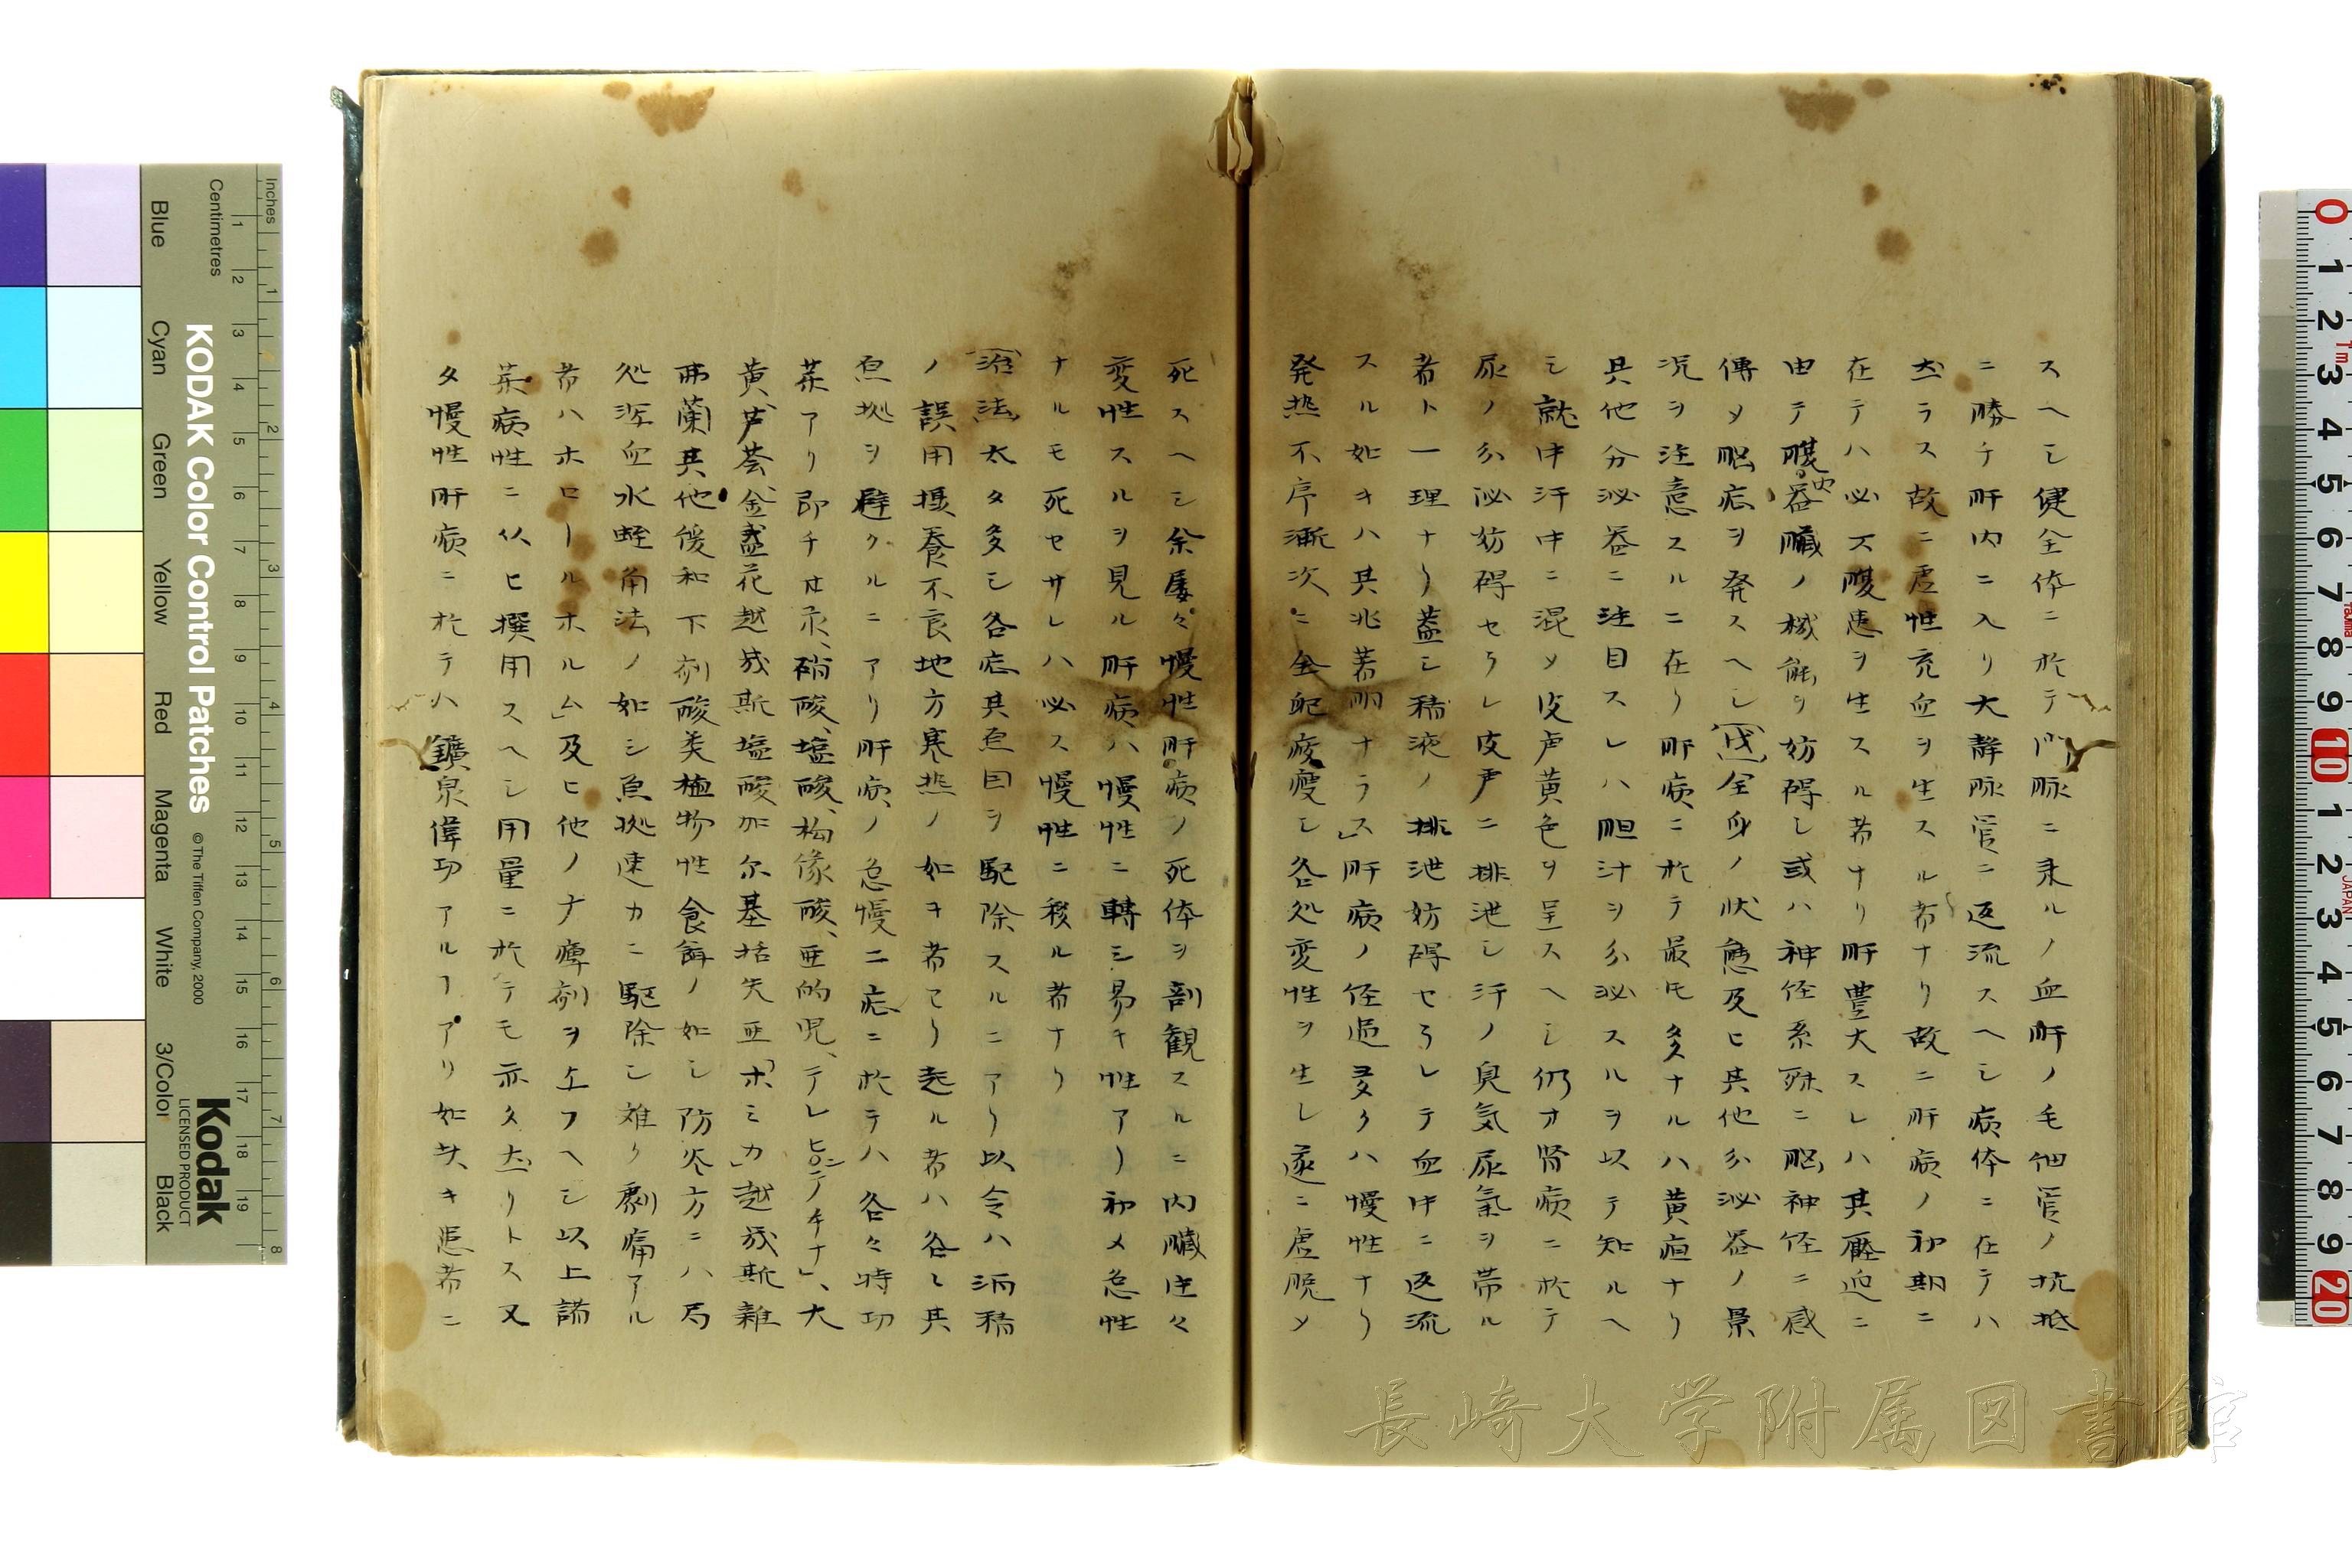 スヘシ健全体ニ於テ門脈ニ来ルノ血肝ノ毛細管ノ抗抵
ニ勝チ肝内ニ入リ大静脈管ニ返流スヘシ病体ニ在テハ
然ラス故ニ虚性充血ヲ生スル者ナリ故ニ肝病ノ初期ニ
在テハ必ス腹患ヲ生スル者ナリ肝豊大スレハ其壓迫ニ
由テ腹内器臓ノ機能ヲ妨碍し或ハ神経系殊ニ脳神経ニ感
傳メ脳症ヲ発スヘし全身ノ状態及ヒ其他分泌器ノ景
況ヲ注意スルニ在り肝病ニ於テ最モ多ナルハ黄疸ナリ
其他分泌器ニ注目スレハ胆汁ヲ分泌スルヲ以テ知ルヘ
シ就中汗中ニ混メ皮膚黄色ヲ呈スヘし仍才腎病ニ於テ
尿ノ分泌妨碍セラレ皮膚ニ排泄し汗ノ臭気尿氣ヲ帯ル
者ト一理ナリ蓋し稀液ノ排泄妨碍セラレテ血中ニ返流
スル如キハ其兆著明ナラス」肝病ノ経過多クハ慢性ナリ
発熱不序漸次ニ全配疲痩し各処変性ヲ生し遂ニ虚脱メ
死スヘシ余屡々慢性肝病ノ死体ヲ剖観スルニ内臓往々
変性スルヲ見ル肝病ハ慢性ニ轉シ易キ性アリ初メ急性
ナルモ死セサレハ必ス慢性ニ移ル者ナリ
治法太タ多シ各症其原因ヲ駆除スルニアリ以令ハ酒稀
ノ誤用摂養不良地方寒熱ノ如キ者モリ起ル者ハ各し其
原拠ヲ避クルニアリ肝病ノ急慢二症ニ於テハ各々特功
茱アリ即チ甘汞、硝酸、塩酸、枸櫞酸、亜的児、テレピンテチナ」、大
黄、芦薈、金盞花越幾斯塩酸加尓基括矢亜「ホミカ」越幾斯雑
弗蘭其他緩和下剤酸類植物性食餌ノ如シ防炎方ニハ局
処瀉血水蛭角法ノ如シ原拠速カニ駆除し難ク劇痛アル
者ハホロールホルム」及ヒ他ノ麻痺剤ヲ与フヘシ以上諸
茱病性ニ从ヒ撰用スヘシ用量ニ於テモ亦タ然リトス又
タ慢性肝病ニ於テハ鑛泉偉功アルヿアリ如其キ患者ニ
長崎大学附属図書館
KODAK Color Control Patches
© The Tiffen Company, 2000
Kodak
LICENSED PRODUCT
Inches
Centimetres
Blue
Cyan
Green
Yellow
Red
Magenta
White
3/Color
Black